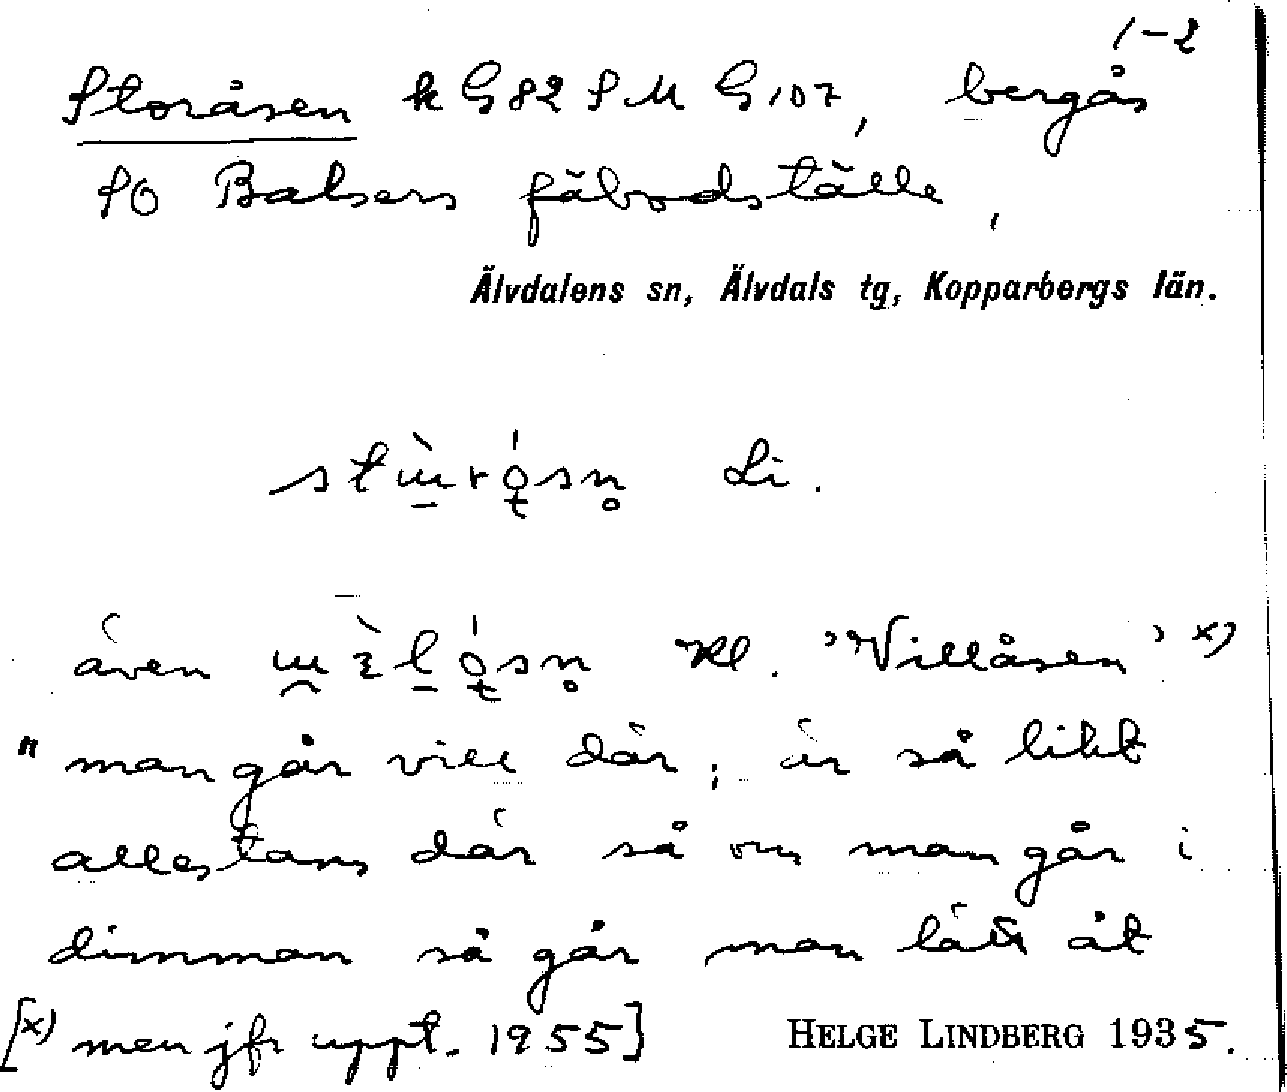 1-2
Storåsen k G82 SM G107, bergås
SO Balsers fäbodställe,
Älvdalens sn, Älvdals tg, Kopparbergs län.
Li.
även Kl. "Villåsen" x)
"man går vill där, är så likt
allestans där så om man går i
dimman så går man lätt åt
[x) men jfr uppt. 1955]
HELGE LINDBERG 1935.